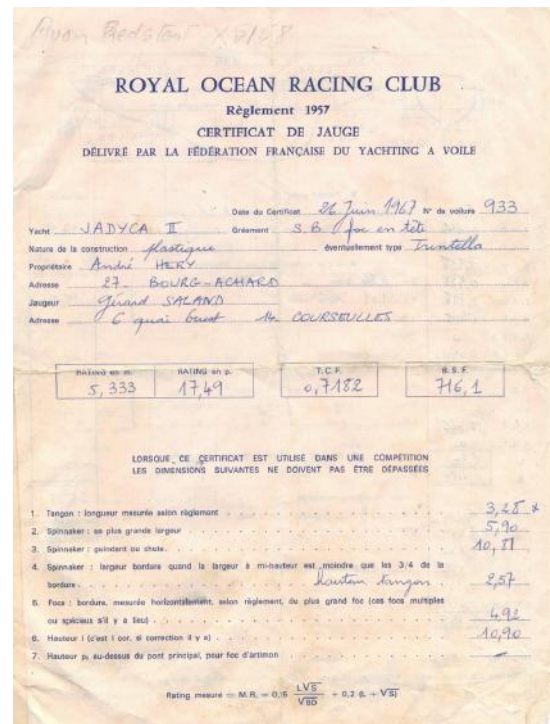 ROYAL OCEAN RACING CLUB
Règlement 1957
CERTIFICAT DE JAUGE
DÉLIVRÉ PAR LA FÉDÉRATION FRANÇAISE DU YACHTING A VOILE
Date du Certificat 26 Juin 1967 N° de voilure 933
Yacht JADYCA II Gréement S.B. foc en tête
Nature de la construction plastique éventuellement type Trintella
Propriétaire André HERY
Adresse 27 - BOURG-ACHARD
Jaugeur Gérard SALAND
Adresse 6 quai Ouest 14 COURSEULLES
RATING en m. RATING en p. T.C.F. B.S.F.
5,333 17,49 0,7182 716,1
LORSQUE CE CERTIFICAT EST UTILISÉ DANS UNE COMPÉTITION
LES DIMENSIONS SUIVANTES NE DOIVENT PAS ÊTRE DÉPASSÉES
1. Tangon : longueur mesurée selon règlement 3,28 *
2. Spinnaker : sa plus grande largeur 5,90
3. Spinnaker : guindant ou chute 10,81
4. Spinnaker : largeur bordure quand la largeur à mi-hauteur est moindre que les 3/4 de la
bordure hauteur tangon 2,57
5. Focs : bordure, mesurée horizontalement, selon règlement, du plus grand foc (cas focs multiples
ou spéciaux s'il y a lieu) 4,92
6. Hauteur I (c'est I cor. si correction il y a) 10,90
7. Hauteur p, au-dessus du pont principal, pour foc d'artimon -
Rating mesuré = M.R. = 0,15 L√S / √BD + 0,2 (L + √S)